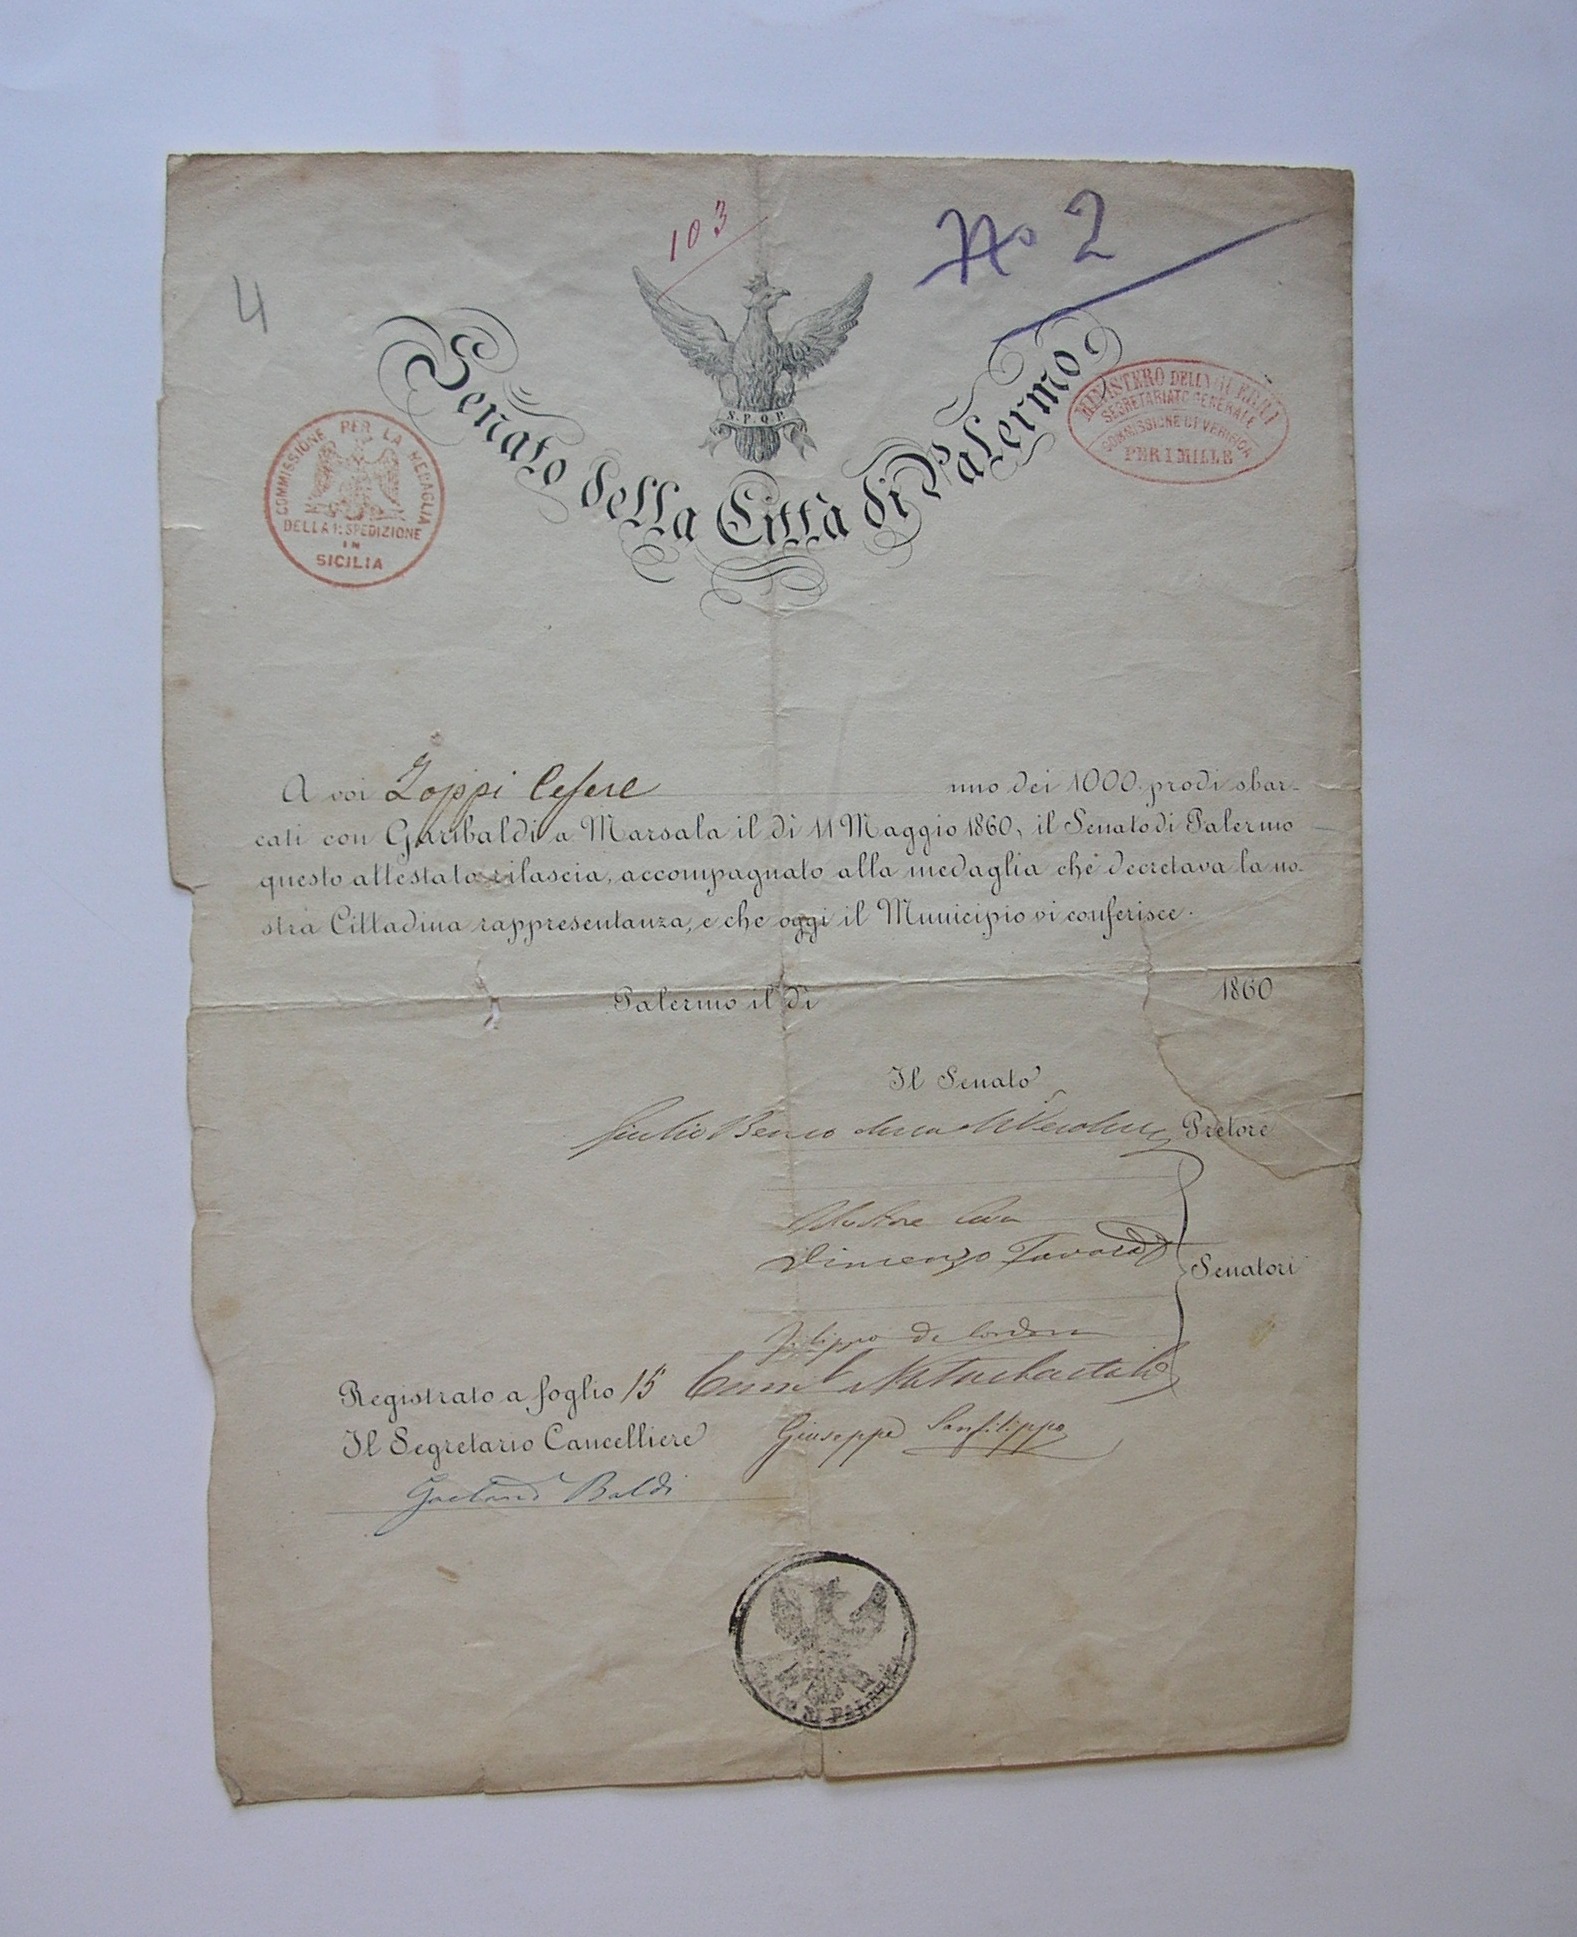 103
No 2
4
S. P. Q. P.
Senato della Città di Palermo
COMMISSIONE PER LA MEDAGLIA
DELLA 1ª SPEDIZIONE
IN
SICILIA
MINISTERO DELLA GUERRA
SEGRETARIATO GENERALE
COMMISSIONE DI VERIFICA
PER I MILLE
A voi Zoppi Cesere uno dei 1000 prodi sbar-
cati con Garibaldi a Marsala il dì 11 Maggio 1860, il Senato di Palermo
questo attestato rilascia, accompagnato alla medaglia che decretava la no-
stra Cittadina rappresentanza, e che oggi il Municipio vi conferisce.
Palermo il dì 1860
Il Senato
Giulio Benso duca della Verdura Pretore
Salvatore Cusa
Vincenzo
Senatori
Filippo de Cordova
Registrato a foglio 15
Il Segretario Cancelliere
Giuseppe Sanfilippo
Gaetano Baldi
SENATO DI PALERMO